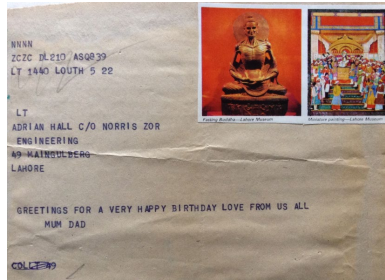 NNNN
ZCZC DL210 ASQB39
LT 1440 LOUTH 5 22
LT
ADRIAN HALL C/O NORRIS ZOR
ENGINEERING
49 MAINGULBERG
LAHORE
GREETINGS FOR A VERY HAPPY BIRTHDAY LOVE FROM US ALL
MUM DAD
COLLT 49
Fasting Buddha—Lahore Museum
Miniature painting—Lahore Museum